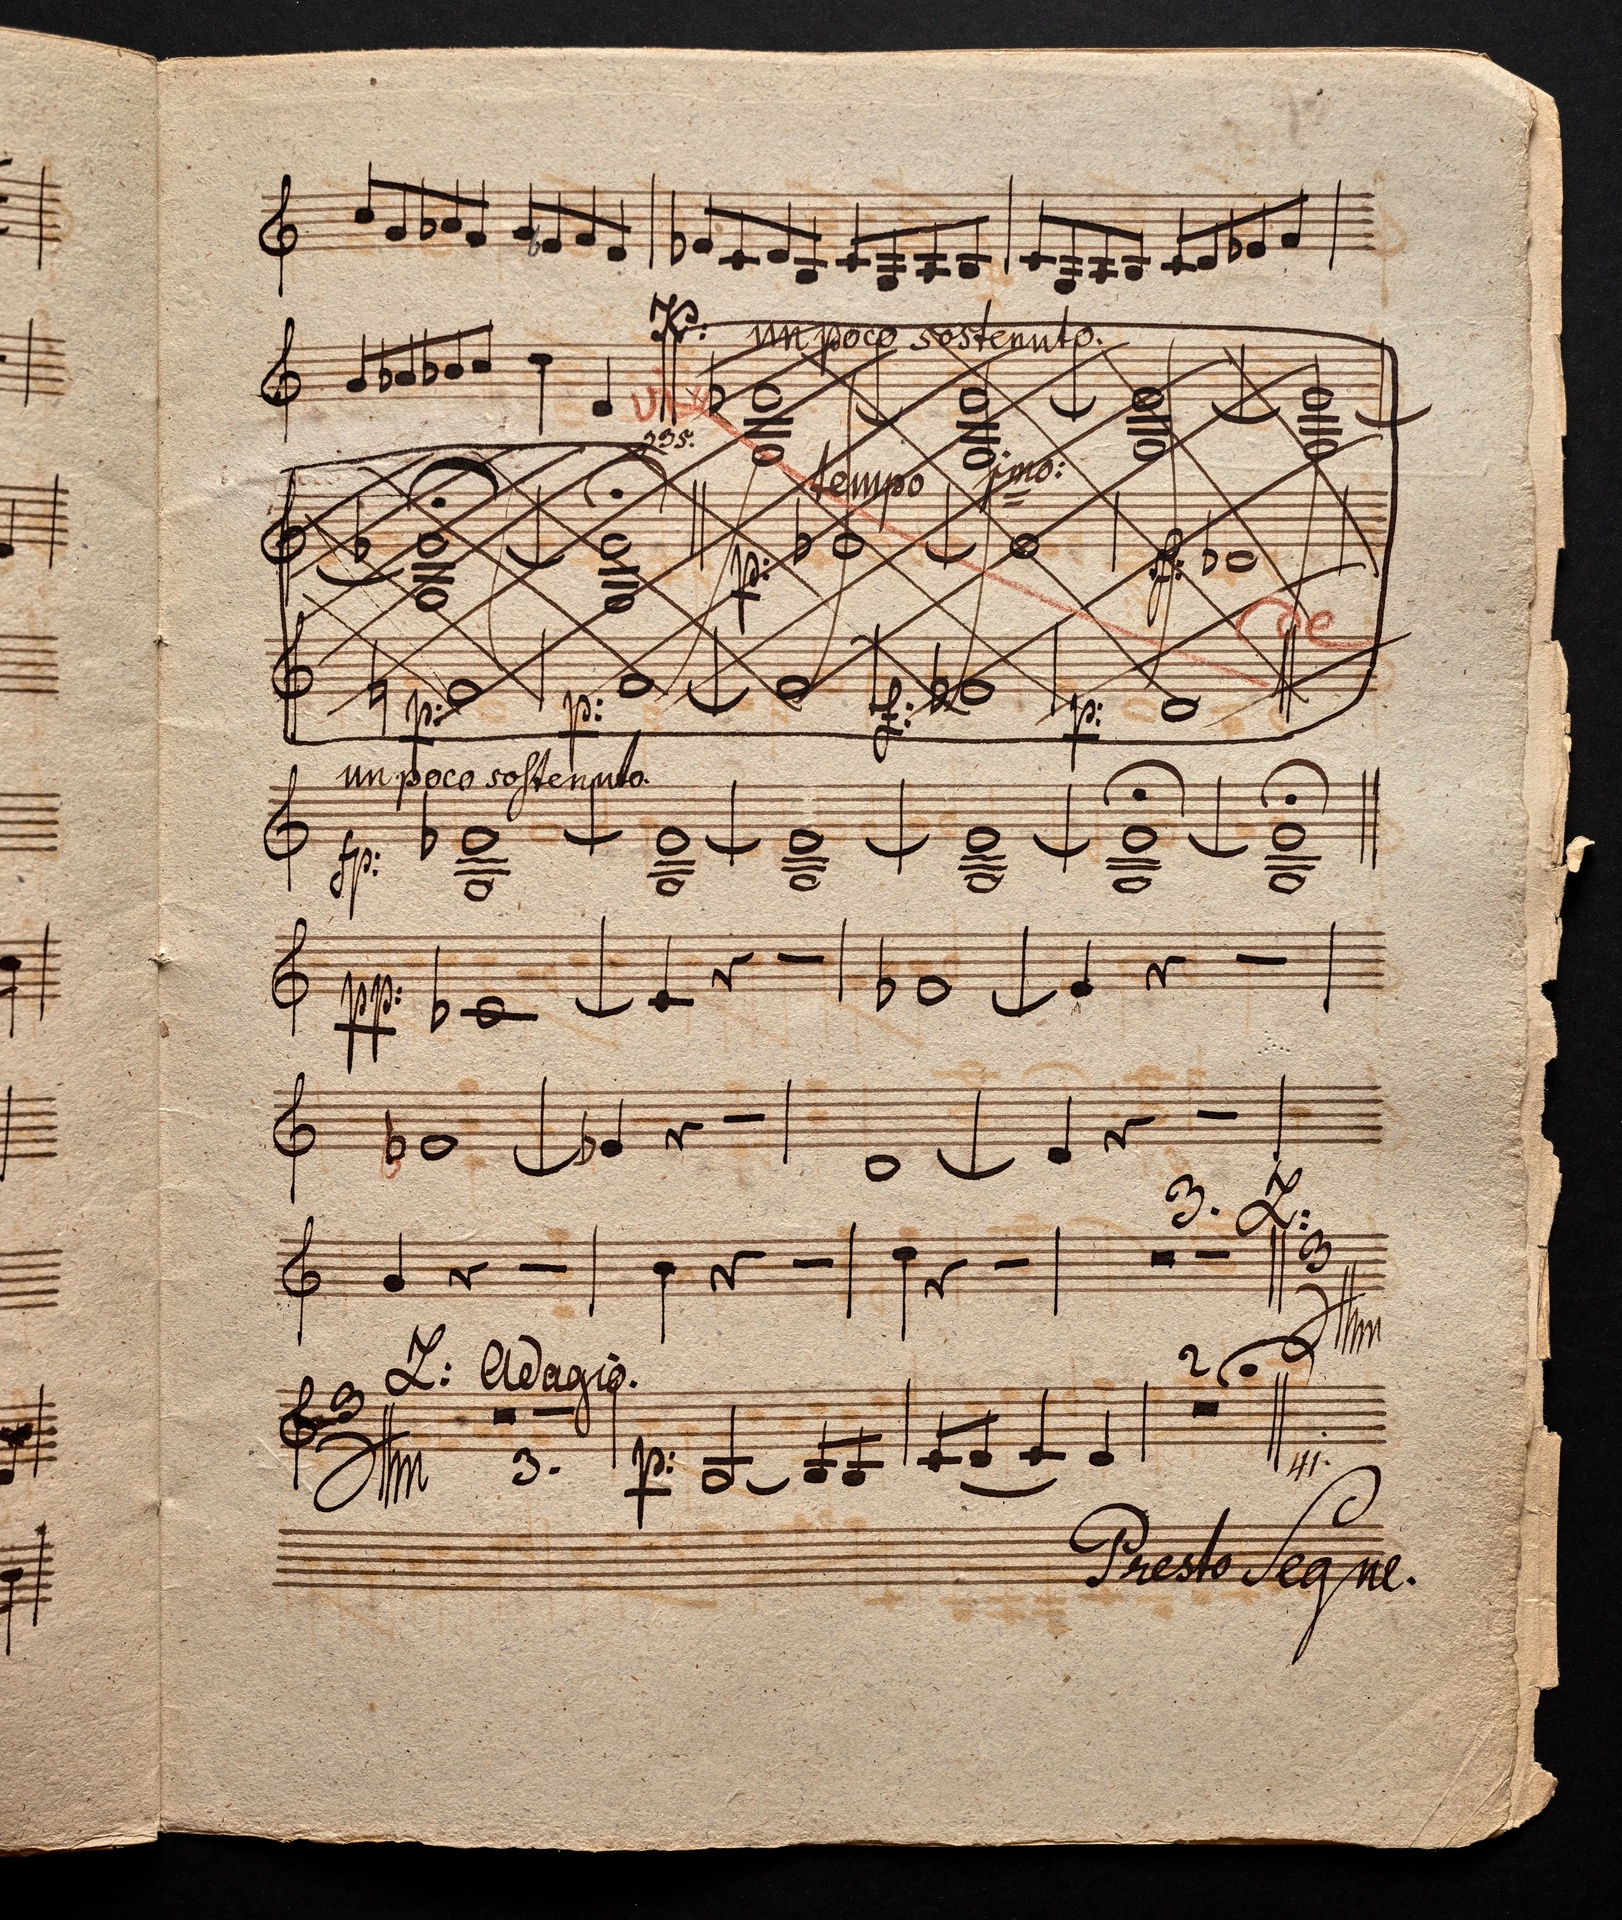 K: un poco sostenuto.
235.
Vi=
tempo imo:
p: f:
=de
p: p: f: p:
un poco sostenuto.
fp:
pp:
3. L:
3
L: Adagio. 2
3
3. p: 41.
Presto Segue.